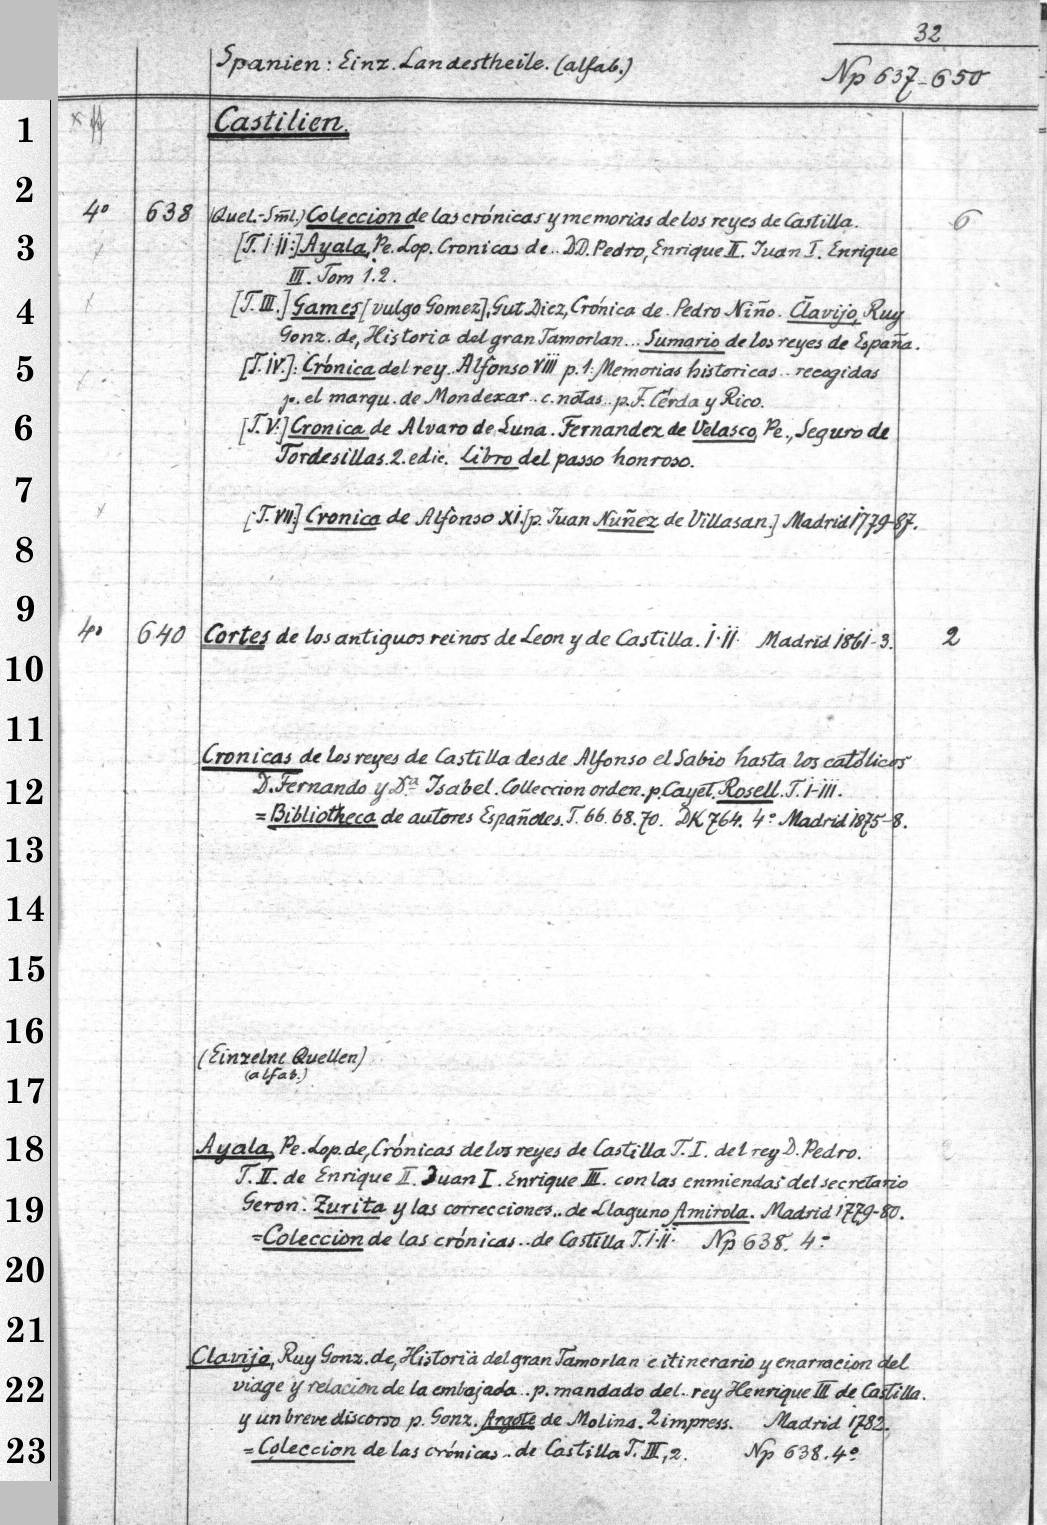 32
Spanien: Einz. Landestheile. (alfab.)
Np 637-650
1
Castilien.
2
4° 638 (Quel.-Sml.) Coleccion de las crónicas y memorias de los reyes de Castilla. 6
3 [T. I-II:] Ayala, Pe. Lop. Cronicas de.. DD. Pedro, Enrique II. Juan I. Enrique
III. Tom 1.2.
4 [T. III.] Games [vulgo Gomez], Gut. Diez, Crónica de Pedro Niño. Clavijo, Ruy
Gonz. de, Historia del gran Tamorlan... Sumario de los reyes de España.
5 [T. IV.] Crónica del rey Alfonso VIII p. 1: Memorias historicas.. recogidas
p. el marqu. de Mondexar.. c. notas.. p. F. Cérda y Rico.
6 [T. V.] Cronica de Alvaro de Luna. Fernandez de Velasco, Pe., Seguro de
Tordesillas. 2. edic. Libro del passo honroso.
7
[T. VII.] Cronica de Alfonso XI. [p. Juan Nuñez de Villasan.] Madrid 1779-87.
8
9
4° 640 Cortes de los antiguos reinos de Leon y de Castilla. I-II. Madrid 1861-3. 2
10
11
Cronicas de los reyes de Castilla desde Alfonso el Sabio hasta los católicos
12 D. Fernando y Dª Isabel. Colleccion orden. p. Cayet. Rosell. T. I-III.
= Bibliotheca de autores Españoles. T. 66. 68. 70. DK 764. 4° Madrid 1875-8.
13
14
15
16
(Einzelne Quellen)
(alfab.)
17
18 Ayala, Pe. Lop. de, Crónicas de los reyes de Castilla T. I. del rey D. Pedro.
T. II. de Enrique II. Juan I. Enrique III. con las enmiendas del secretario
19 Geron. Zurita y las correcciones.. de Llaguno Amirola. Madrid 1779-80.
= Coleccion de las crónicas.. de Castilla T. I-II. Np 638. 4°
20
21
Clavijo, Ruy Gonz. de, Historia del gran Tamorlan e itinerario y enarracion del
22 viage y relacion de la embajada.. p. mandado del.. rey Henrique III de Castilla.
y un breve discorso p. Gonz. Argote de Molina. 2 impress. Madrid 1782.
23 = Coleccion de las crónicas.. de Castilla T. III, 2. Np 638. 4°